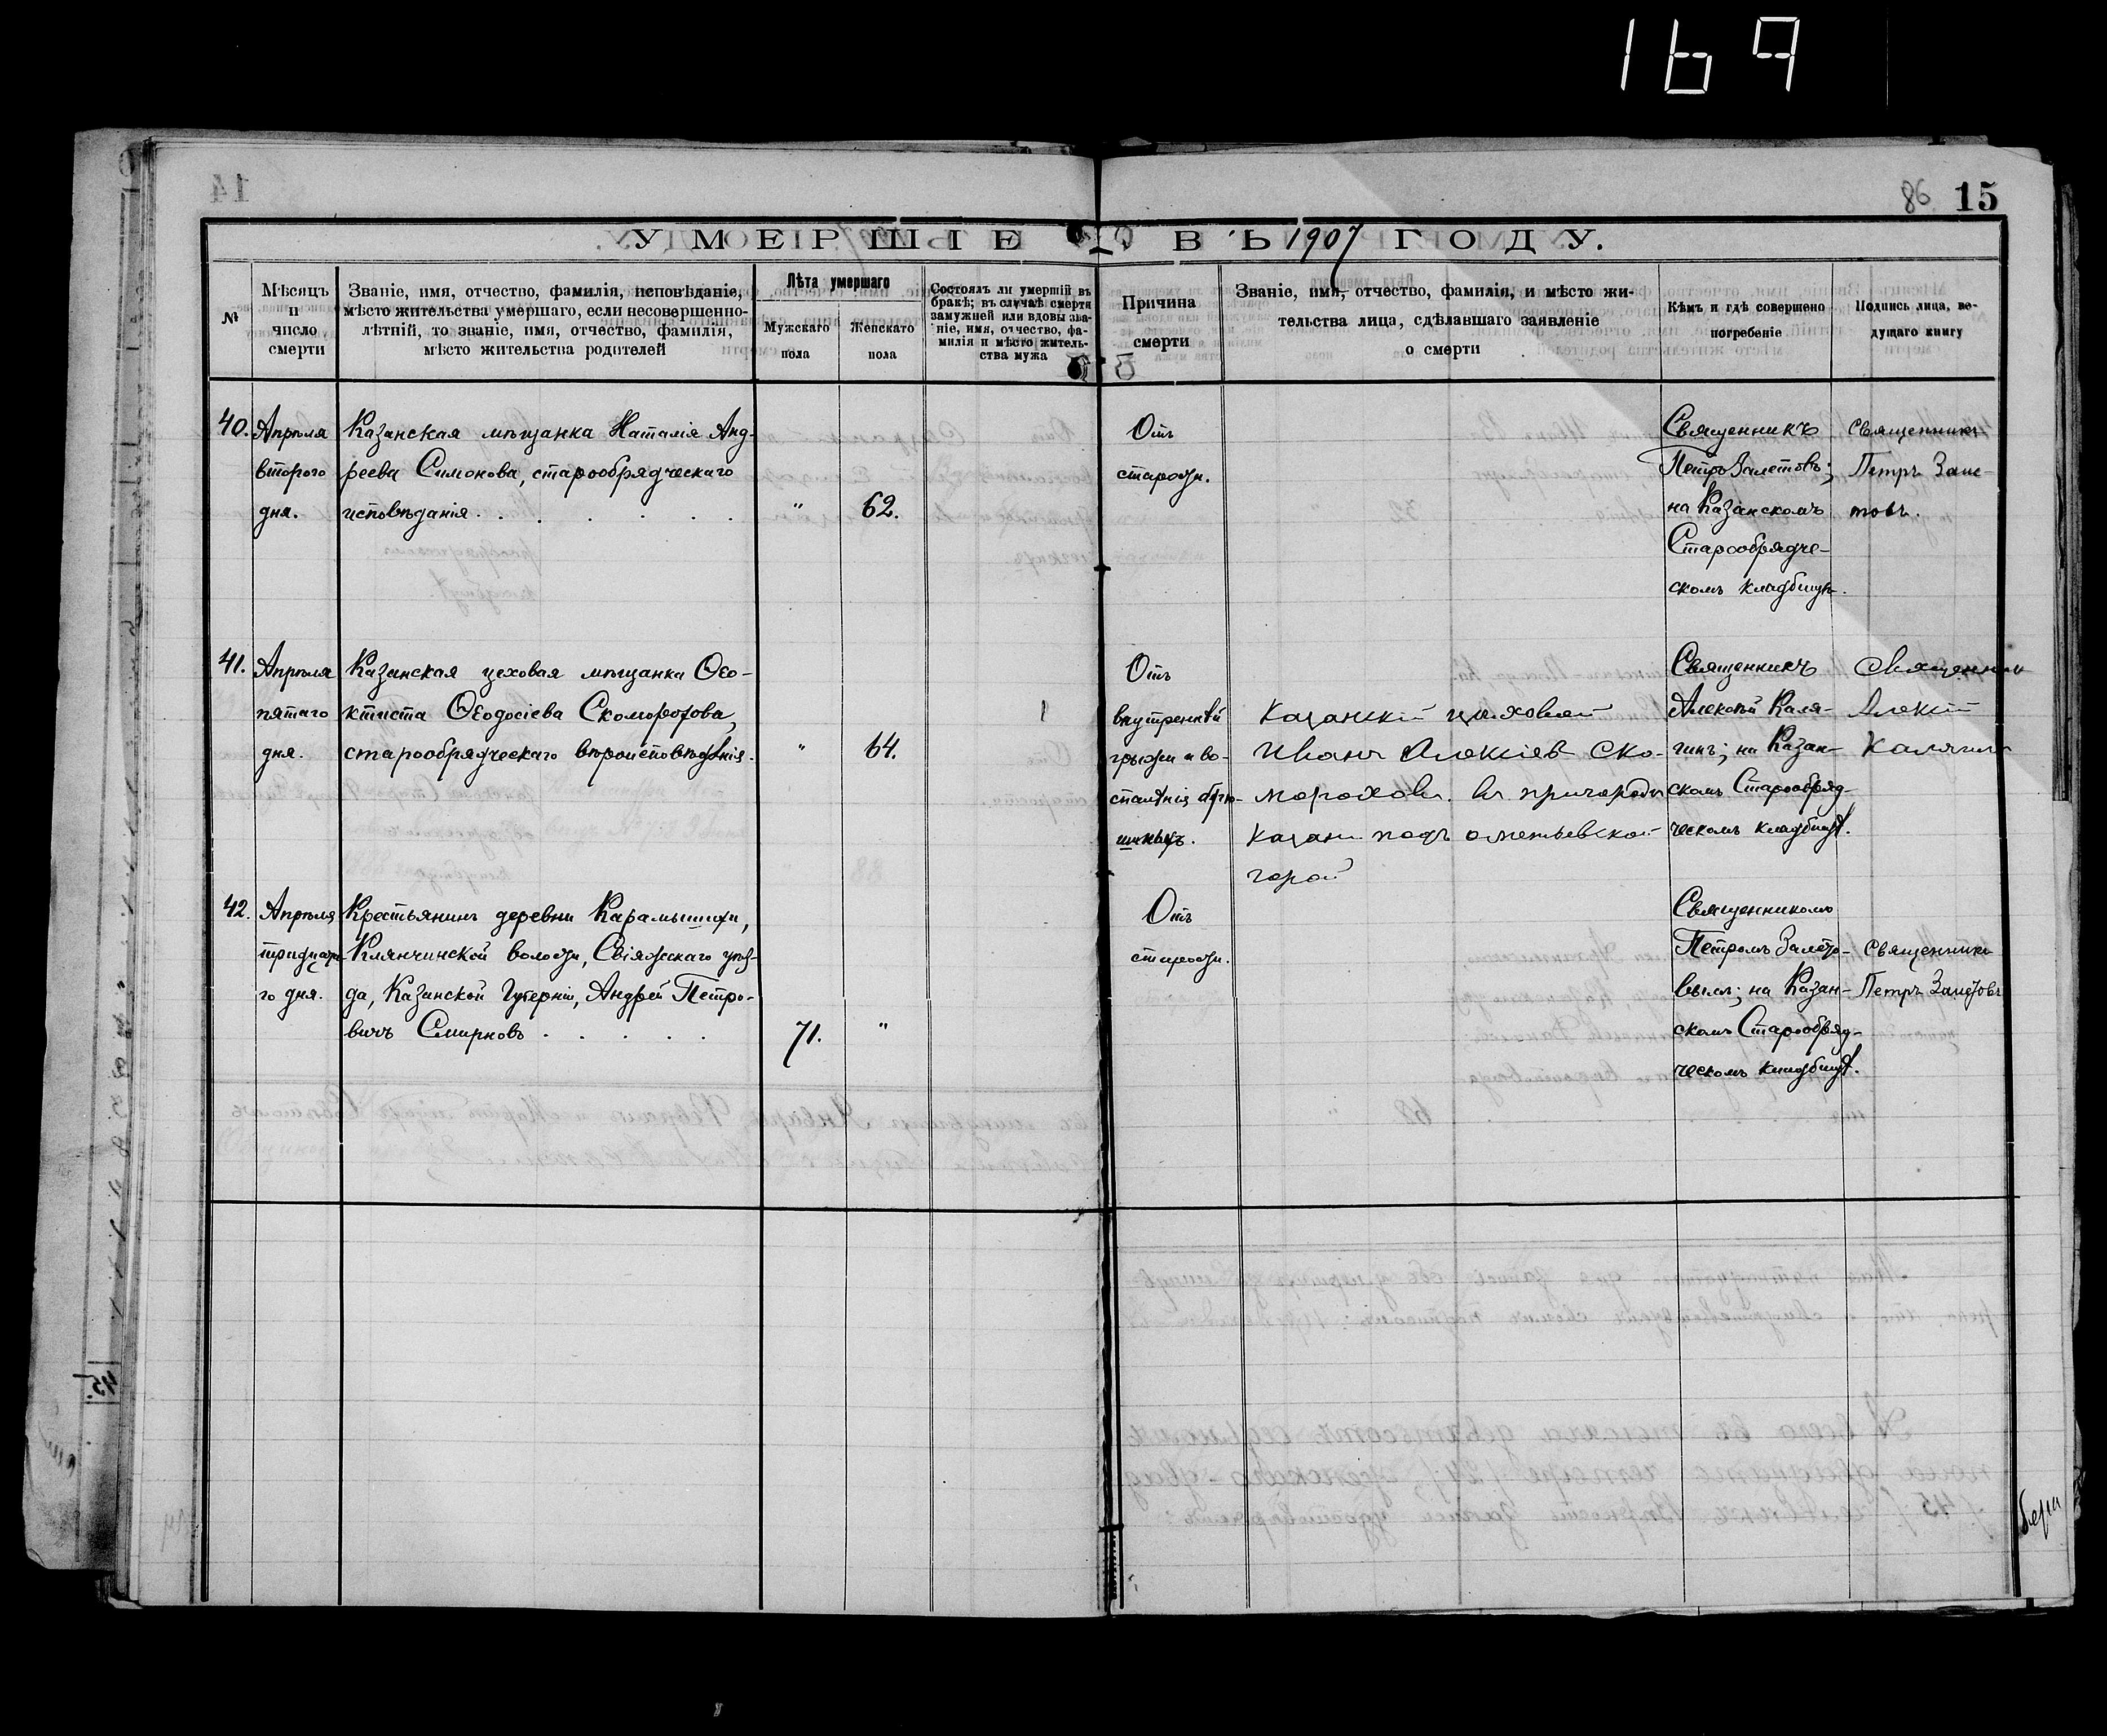 169
86 15
УМЕРШІЕ ВЪ 1907 ГОДУ.
№
Мѣсяцъ
и
число
смерти
Званіе, имя, отчество, фамилія, исповѣданіе,
мѣсто жительства умершаго, если несовершенно-
лѣтній, то званіе, имя, отчество, фамилія,
мѣсто жительства родителей
Лѣта умершаго
Мужскаго
пола
Женскаго
пола
Состоялъ ли умершій въ
бракѣ; въ случаѣ смерти
замужней или вдовы зва-
ніе, имя, отчество, фа-
милія и мѣсто житель-
ства мужа
Причина
смерти
Званіе, имя, отчество, фамилія, и мѣсто жи-
тельства лица, сдѣлавшаго заявленіе
о смерти
Кѣмъ и гдѣ совершено
погребеніе
Подпись лица, ве-
дущаго книгу
40.
Апрѣля
второго
дня.
Казанская мѣщанка Наталія Анд-
реева Симонова, старообрядческаго
исповѣданія . . . . . .
"
62.
Отъ
старости.
Священникъ
Петръ Залетовъ;
на Казанскомъ
Старообрядче-
скомъ кладбищѣ.
Священникъ
Петръ Зале-
товъ.
41.
Апрѣля
пятаго
дня.
Казанская цеховая мѣщанка Ѳео-
ктиста Ѳеодосіева Скоморохова,
старообрядческаго вѣроисповѣданія.
"
64.
Отъ
внутренней
грыжи и во-
спаленія
Казанскій цеховой
Иванъ Алексіев Ско-
мороховъ. въ пригороде
Казани подъ
горой
Священникъ
Алексѣй Каля-
гинъ; на Казан-
скомъ Старообряд-
ческомъ кладбищѣ.
Священник
Алексій
Калягинъ
42.
Апрѣля
тридцата-
го дня.
Крестьянинъ деревни Карамышихи,
Клянчинской волости, Свіяжскаго уѣз-
да, Казанской Губерніи, Андрей Петро-
вичъ Смирновъ . . . . .
71.
"
Отъ
старости.
Священникомъ
Петромъ Залето-
вымъ; на Казан-
скомъ Старообряд-
ческомъ кладбищѣ.
Священникъ
Петръ Залетовъ